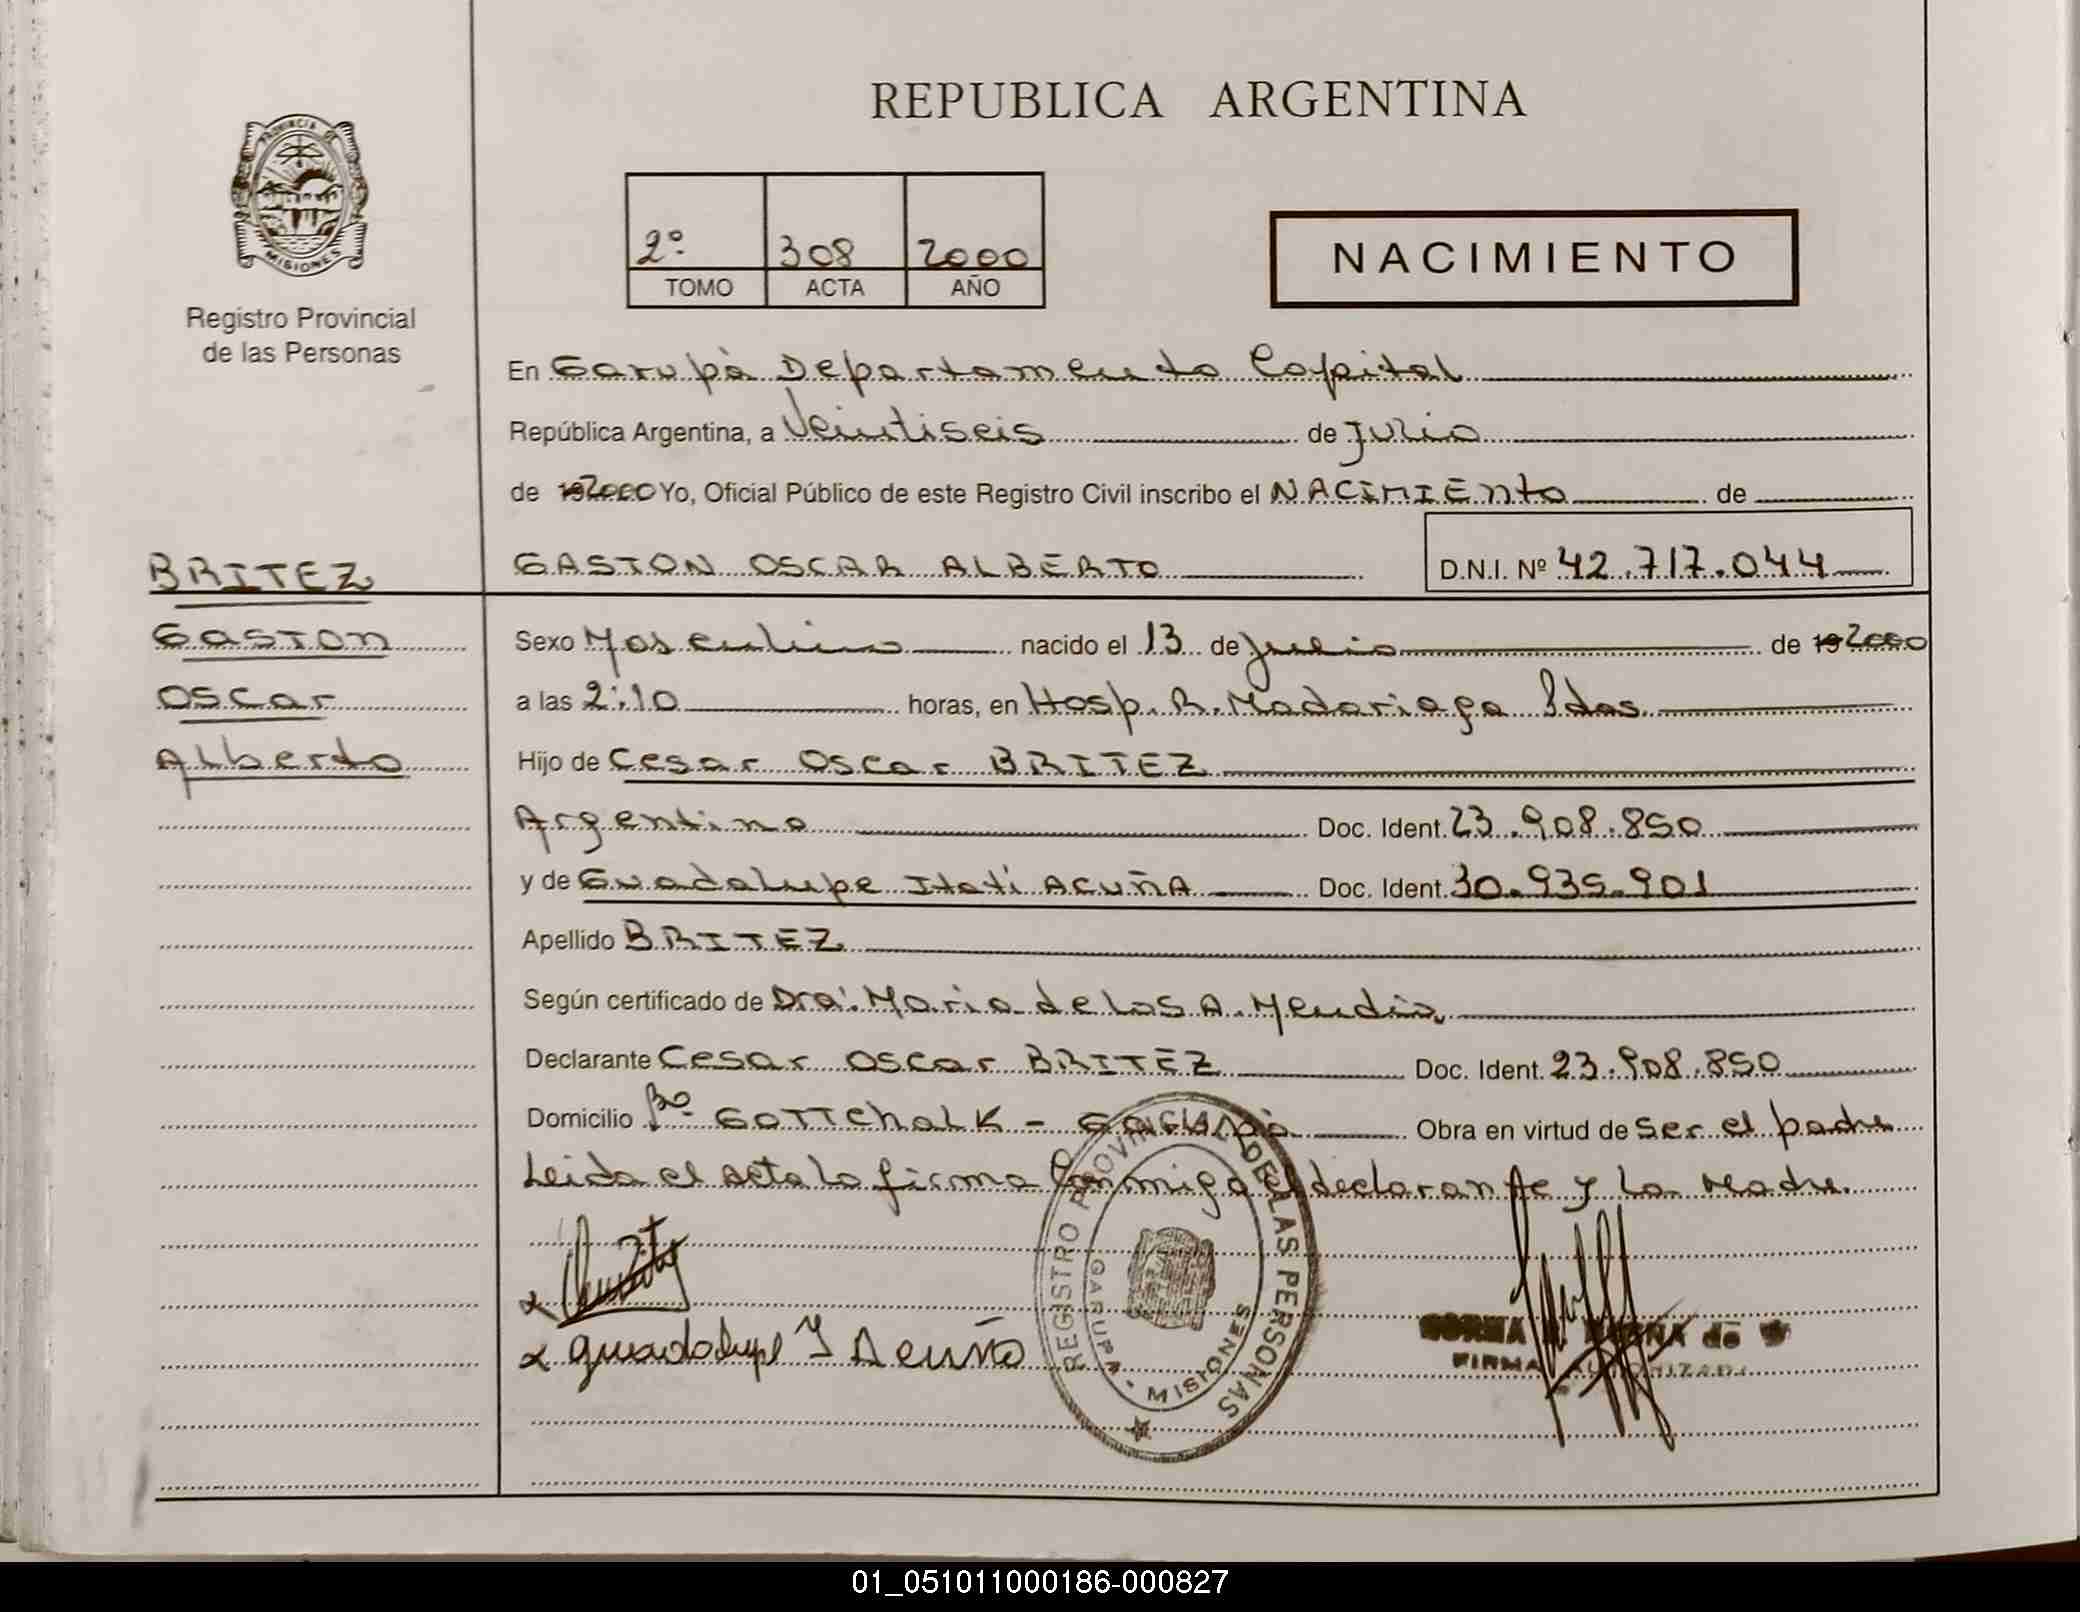 PROVINCIA DE
MISIONES
Registro Provincial
de las Personas
REPUBLICA ARGENTINA
2º 308 2000
TOMO ACTA AÑO
NACIMIENTO
En Garupà Departamento Capital
República Argentina, a Veintiseis de Julio
de 192000 Yo, Oficial Público de este Registro Civil inscribo el NACIMIEnto de
BRITEZ GASTON OSCAR ALBERTO D.N.I. Nº 42.717.044
Gaston Sexo Masculino nacido el 13 de Julio de 19 2000
Oscar a las 2:10 horas, en Hosp. R. Madariaga Pdas.
Alberto Hijo de Cesar Oscar BRITEZ
Argentino Doc. Ident. 23.908.850
y de Guadalupe Itatí ACUÑA Doc. Ident. 30.935.901
Apellido BRITEZ
Según certificado de Dra. Maria de los A. 
Declarante Cesar Oscar BRITEZ Doc. Ident. 23.908.850
Domicilio Bº GOTTChaLK - Garupà Obra en virtud de ser el padre
Leida el acta la firma Conmigo el declarante y la Madre.
REGISTRO PROVINCIAL DE LAS PERSONAS
GARUPA - MISIONES
x
x guadalupe I Acuña
NORMA de
FIRMA AUTORIZADA
01_051011000186-000827